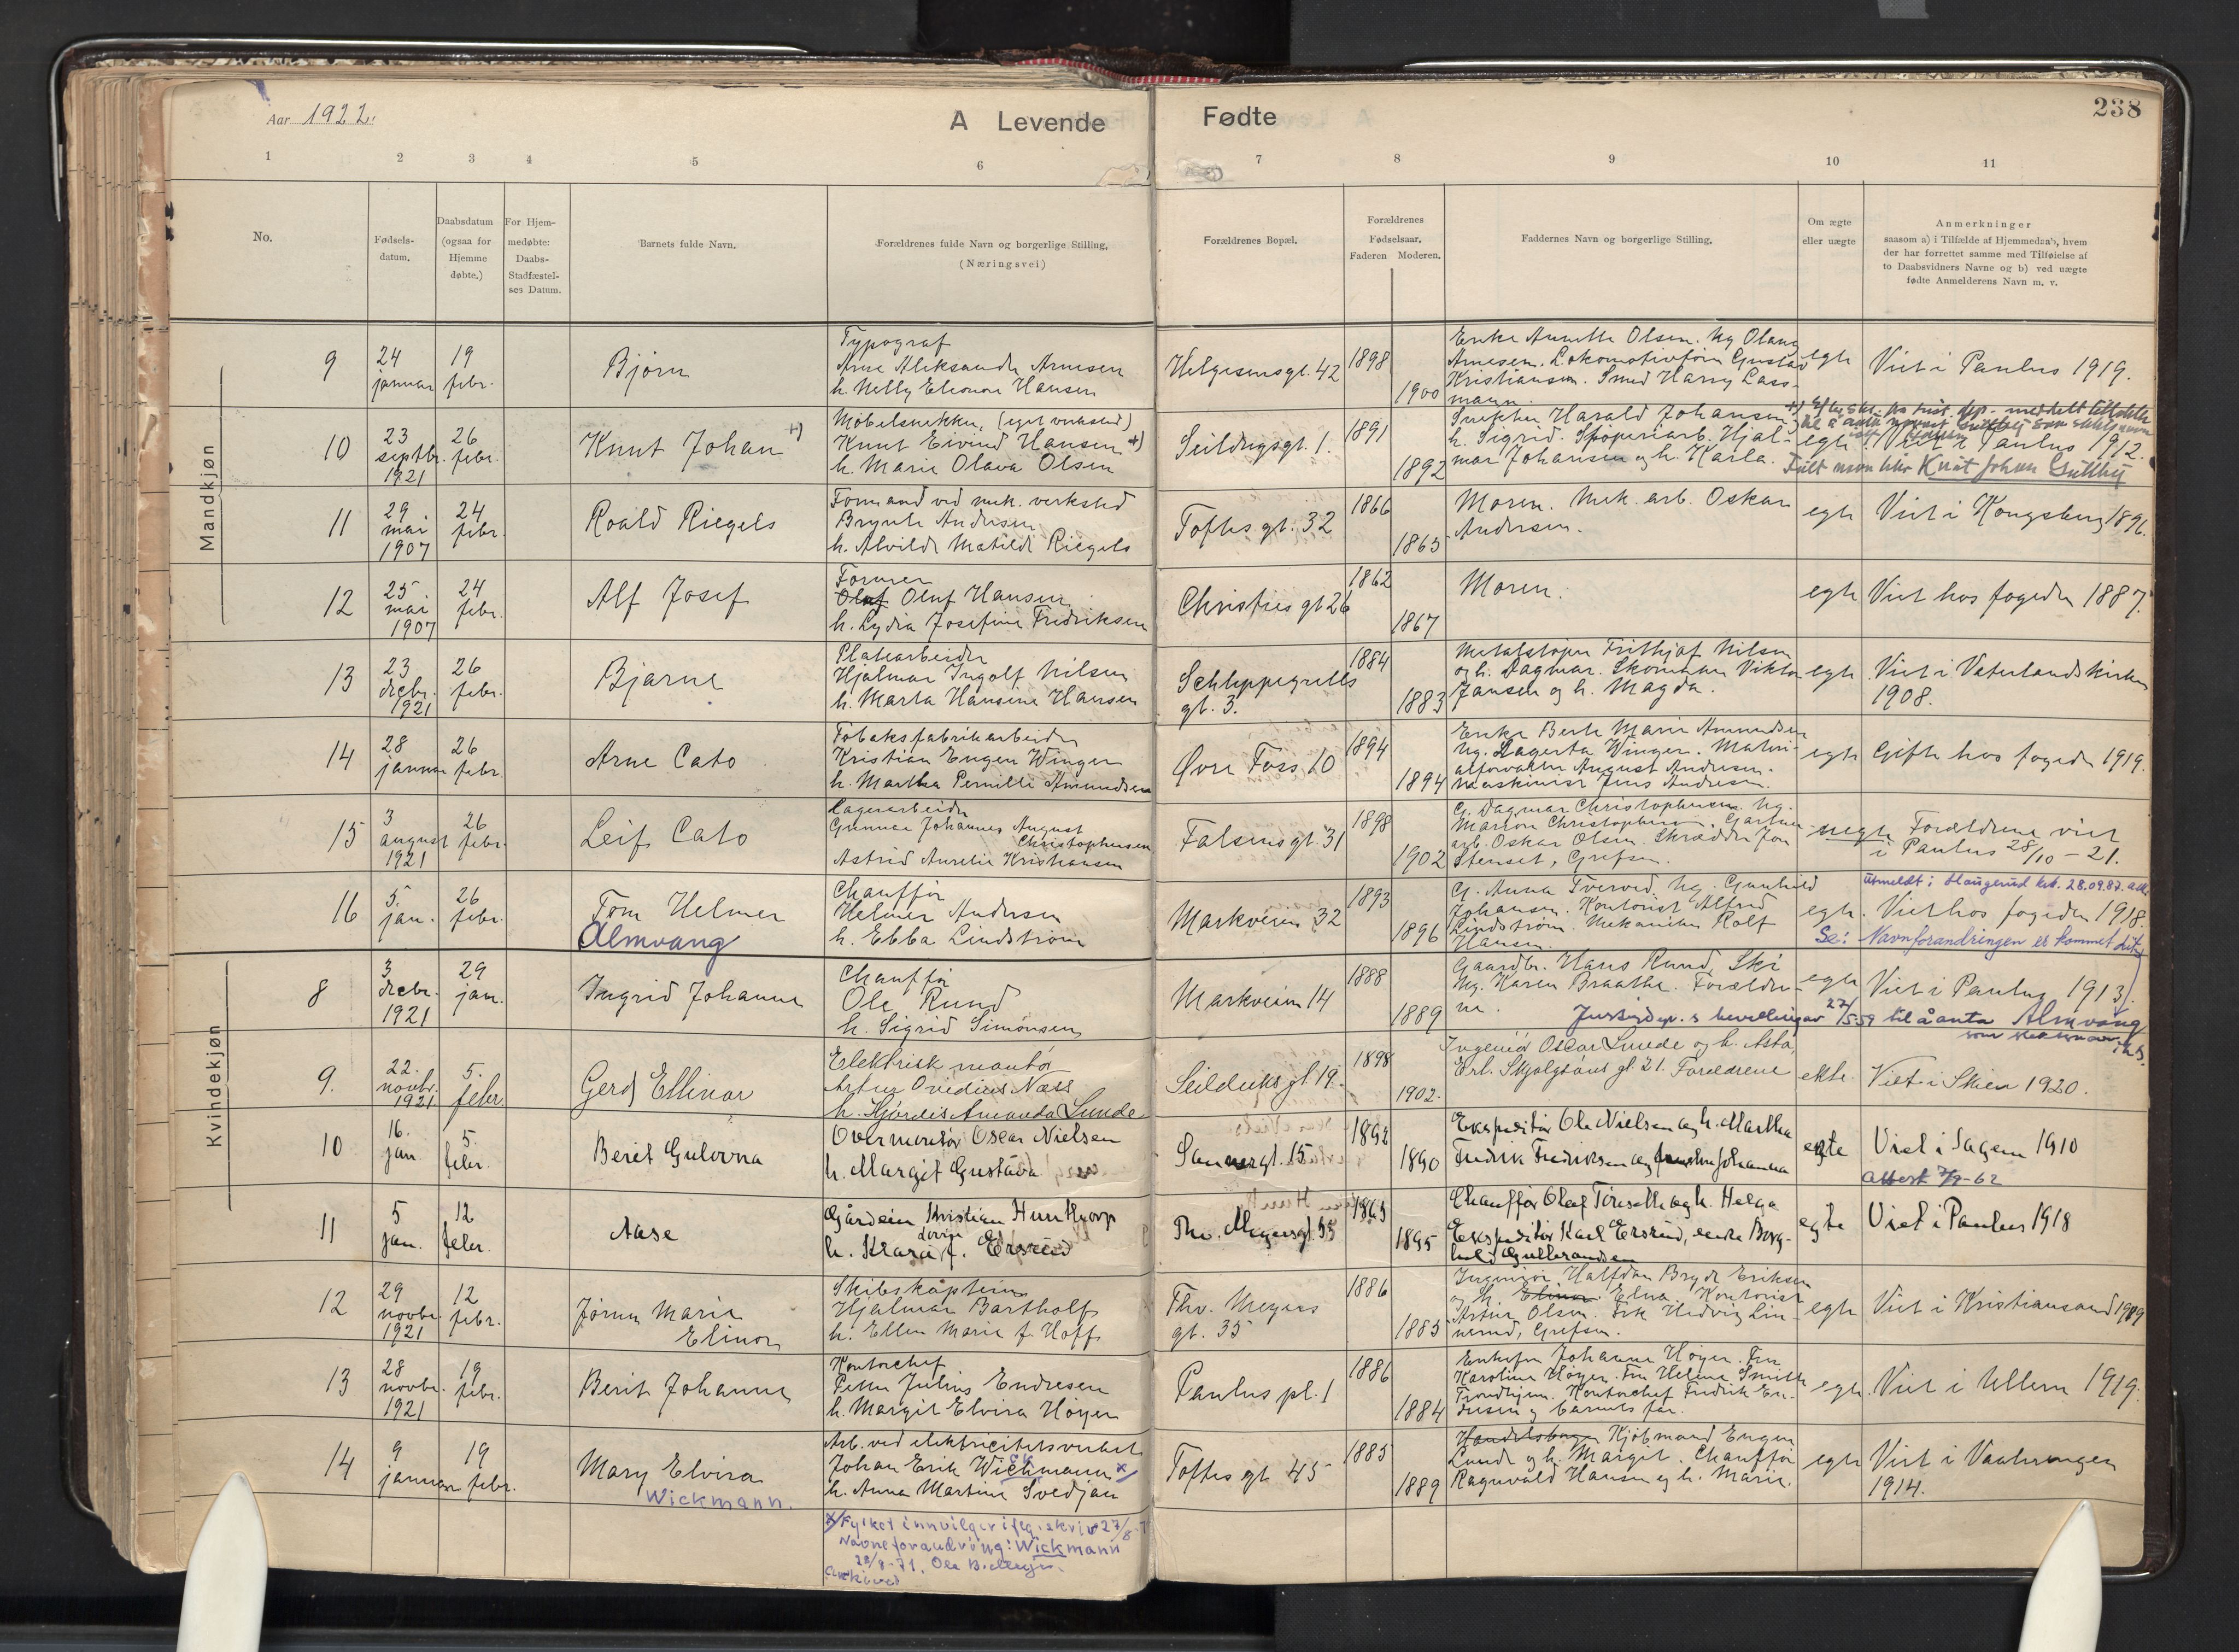 Aar 1922.
A Levende Fødte
238
1 2 3 4 5 6 7 8 9 10 11
No.
Fødsels-
datum.
Daabsdatum
(ogsaa for
Hjemme
døbte.)
For Hjem-
medøbte:
Daabs-
Stadfæstel-
ses Datum.
Barnets fulde Navn.
Forældrenes fulde Navn og borgerlige Stilling.
(Næringsvei)
Forældrenes Bopæl.
Forældrenes
Fødselsaar.
Faderen Moderen.
Faddernes Navn og borgerlige Stilling.
Om ægte
eller uægte
Anmerkninger
saasom a) i Tilfælde af Hjemmedaab, hvem
der har forrettet samme med Tilføielse af
to Daabsvidners Navne og b) ved uægte
fødte Anmelderens Navn m. v.
Mandkjøn
9
24
januar
19
febr.
Bjørn
Typograf
Arne Aleksander Arnesen
h. Nelly Eleonore Hansen
Helgesensgt. 42
1898
1900
Enke Annette Olsen. Ug Olang
Arnesen. Lokomotivfører Gustav
Kristiansen. Smed Harry Lass-
mann.
egte
Viet i Paulus 1919.
10
23
septbr.
1921
26
febr.
Knut Johan +)
Møbelsnekker, (eget verksted)
Knut Eivind Hansen +)
h. Marie Olava Olsen
Seildugsgt. 1.
1891
1892
Snekker Harald Johansen
h. Sigrid. Støperiarb. Hjal-
mar Johansen og h. Karla.
egte
Viet i Paulus 1912.
Fullt navn blir Knut Johan Gulthy
11
29.
mai
1907
24
febr.
Roald Riegels
Formand ved mek. verksted
Brynte Andersen
h. Alvilde Matilde Riegels
Toftes gt. 32
1866
1865
Moren. Mek. arb. Oskar
Andersen.
egte
Viet i Kongsberg 1896.
12
25.
mai
1907
24
febr.
Alf Josef
Former
Oluf Hansen
h. Lydia Josefine Fredriksen
Christies gt 26
1862
1867
Moren.
egte
Viet hos fogden 1887.
13
23
decbr.
1921
26
febr.
Bjarne
Platearbeider
Hjalmar Ingolf Nilsen
h. Marta Hansine Hansen
Schleppegrells
gt. 3.
1884
1883
Metalstøper Frithjof Nilsen
og h. Dagmar. Skomaker Viktor
Jansen og h. Magda.
egte
Viet i Vaterlands kirken
1908.
14
28
januar
26
febr.
Arne Cato
Tobaksfabrikarbeider
Kristian Eugen Winger
h. Martha Pernille Amundsen
Øvre Foss 10
1894
1894
Enke Berte Marie Amundsen
Ug. Lagerta Winger. Materi-
alforvalter August Andresen.
Maskinist Jens Andresen.
egte
Gifte hos fogden 1919.
15
3
august
1921
26
febr.
Leif Cato
Lagerarbeider
Gunnar Johannes August
Christophersen
Astrid Aurelie Kristiansen
Falsens gt. 31
1898
1902
G. Dagmar Christophersen. Ug.
Marion Christophersen. Gartner-
arb. Oskar Olsen. Skrædder Jon
Stenset, Grefsen.
uegte
Forældrene viet
i Paulus 28/10 - 21.
16
5.
jan.
26
febr.
Tom Helmer
Almvang
Chauffør
Helmer Andersen
h. Ebba Lindstrøm
Markveien 32
1893
1896
G. Anna Tverved. Ug. Gunhild
Johansen. Kontorist Alfred
Lindstrøm. Mekaniker Rolf
Hansen.
egte.
Utmeldt i Haugerud kek. 28.09.87.
Viet hos fogden 1918.
Se: Navnforandringen er kommet hit
Kvindekjøn
8
3
decbr.
1921
29
jan.
Ingrid Johanne
Chauffør
Ole Rund
h. Sigrid Simonsen
Markveien 14
1888
1889
Gaardbr. Hans Rund, Ski
Ug. Karen Braathe. Forældre-
ne.
egte
Viet i Paulus 1913.
Justisdep. s bevilling av 27/5-59 til å anta Almvang
som slektsnavn.
9.
22.
novbr.
1921
5.
febr.
Gerd Ellinor
Elektrisk montør
Artur Ovidius Næss
h. Hjørdis Amanda Lunde
Seilduks gt 19.
1898
1902.
Ingeniør Oscar Lunde og h. Asta,
Erl. Skjalgsøns gt 21. Foreldrene
ekte.
Viet i Skien 1920.
10
16.
jan.
5.
febr.
Berit Gulovna
Overmontør Oscar Nielsen
h. Margit Gustava
Sannergt. 15
1892
1890
Ekspeditør Ole Nielsen og h. Martha
Fredrik Fredriksen og Johanna
egte
Viet i Sagene 1910
Attest 7/9-62
11
5
jan.
12
febr.
Aase
Gårdeier Kristian Hunthorp
h. Klara f. Ersrud
Th. Meyersgt. 35
1863
1895
Chauffør Olaf Tøreseth og h. Helga
Ekspeditør Karl Ersrud, enke Borg-
hild Gulbrandsen
egte
Viet i Paulus 1918
12
29
novbr.
1921
12
febr.
Jørun Marie
Elinor
Skibskaptein
Hjalmar Bartholf
h. Ellen Marie f. Hoff
Thv. Meyers
gt. 35
1886
1885
Ingeniør Halfdan Bryde Eriksen
og h. Elna. Kontorist
Artur Olsen. Frk Hedvig Lin-
nerud, Grefsen.
egte
Viet i Kristiansand 1909
13
28
novbr.
1921
19
febr.
Berit Johanne
Kontorchef
Petter Julius Endresen
h. Margit Elvira Høyer
Paulus pl. 1
1886
1884
Enkefru Johanne Høyer. Fru
Karoline Høyer. Fru Helene Smith
Trondhjem. Kontorchef Fredrik En-
dresen og barnets far.
egte
Viet i Ullern 1919.
14
9
januar
19
febr.
Mary Elvira
Wickmann.
Arb. ved elektricitetsverket
Johan Erik Wichmann x/
h. Anna Martine Svedjan
Toftes gt. 45
1885
1889
Kjøbmand Eugen
Lunde og h. Margit. Chauffør
Ragnvald Hansen og h. Marie.
egte
Viet i Vaalerengen
1914.
x/ Fylket innvilger iflg. skriv 27/8-71
Navneforandring: Wickmann
28/8-71. Ole B.